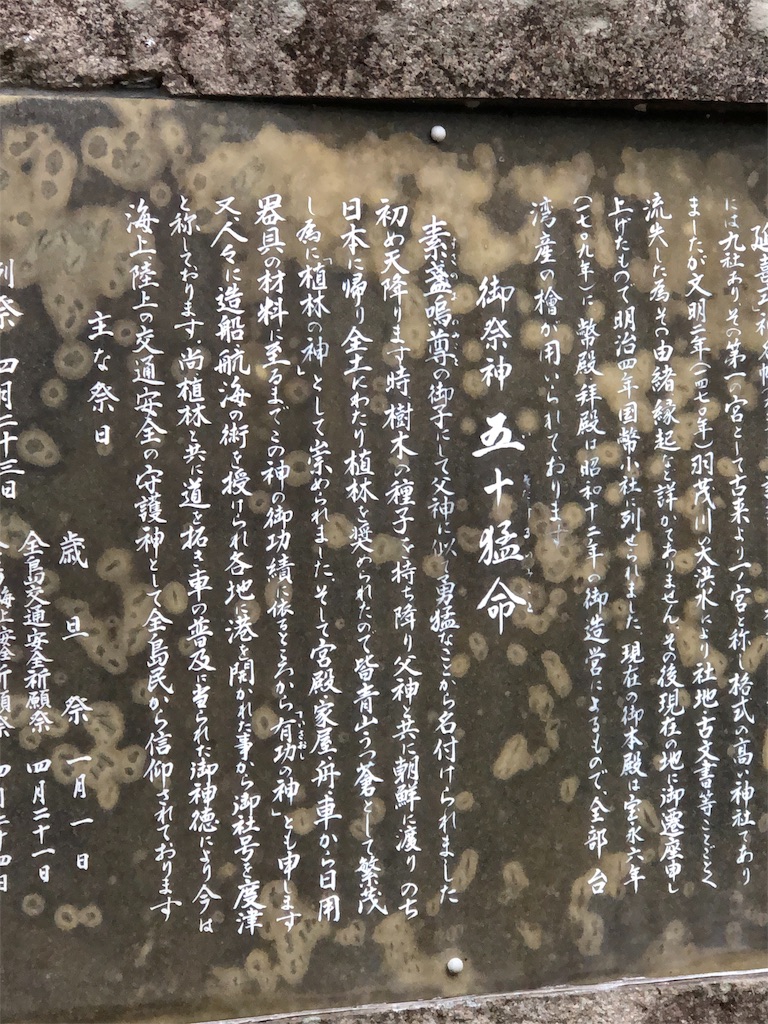 延喜式神名帳
には九社ありその第一の宮として古来より一ノ宮と称し格式の高い神社であり
ましたが文明二年(一四七〇年)羽茂川の大洪水により社地古文書等ことごとく
流失した為その由緒縁起など詳かでありません。その後現在の地に御遷座申し
上げたもので明治四年国幣小社に列せられました。現在の御本殿は宝永六年
(一七〇九年)に幣殿拝殿は昭和十二年の御造営によるもので、全部台
湾産の檜が用いられております
御祭神 五十猛命
素盞嗚尊の御子にして父神に似て勇猛なことから名付けられました
初め天降ります時樹木の種子を持ち降り父神と共に朝鮮に渡りのち
日本に帰り全土にわたり植林を奨められたので皆青山うっ蒼として繁茂
し為に「植林の神」として崇められました。そして宮殿家屋、舟、車から日用
器具の材料に至るまでこの神の御功績に依るところから「有功の神」とも申します
又人々に造船航海の術を授けられ各地に港を開かれた事から御社号を度津
と称しております。尚植林と共に道を拓き車の普及に当られた御神徳により今は
海上、陸上の交通安全の守護神として全島民から信仰されております
主な祭日
歳旦祭 一月一日
例祭 四月二十三日
全島交通安全祈願祭 四月二十一日
海上安全祈願祭 四月二十四日